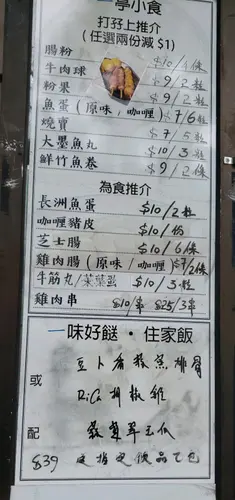 一亭小食
打孖上推介
(任選兩份減 $1)
腸粉 $10/條
牛肉球 $9/2粒
粉果 $9/2粒
魚蛋(原味,咖喱) $7/6粒
燒賣 $7/5粒
大墨魚丸 $10/3粒
鮮竹魚卷 $9/2條
為食推介
長洲魚蛋 $10/2粒
咖喱豬皮 $10/份
芝士腸 $10/6條
雞肉腸(原味/咖喱) /2條
牛筋丸/ $10/3粒
雞肉串 $10/串 $25/3串
一味好餸·住家飯
豆卜香菇蒸排骨
或
雞
配 翠玉瓜
$39